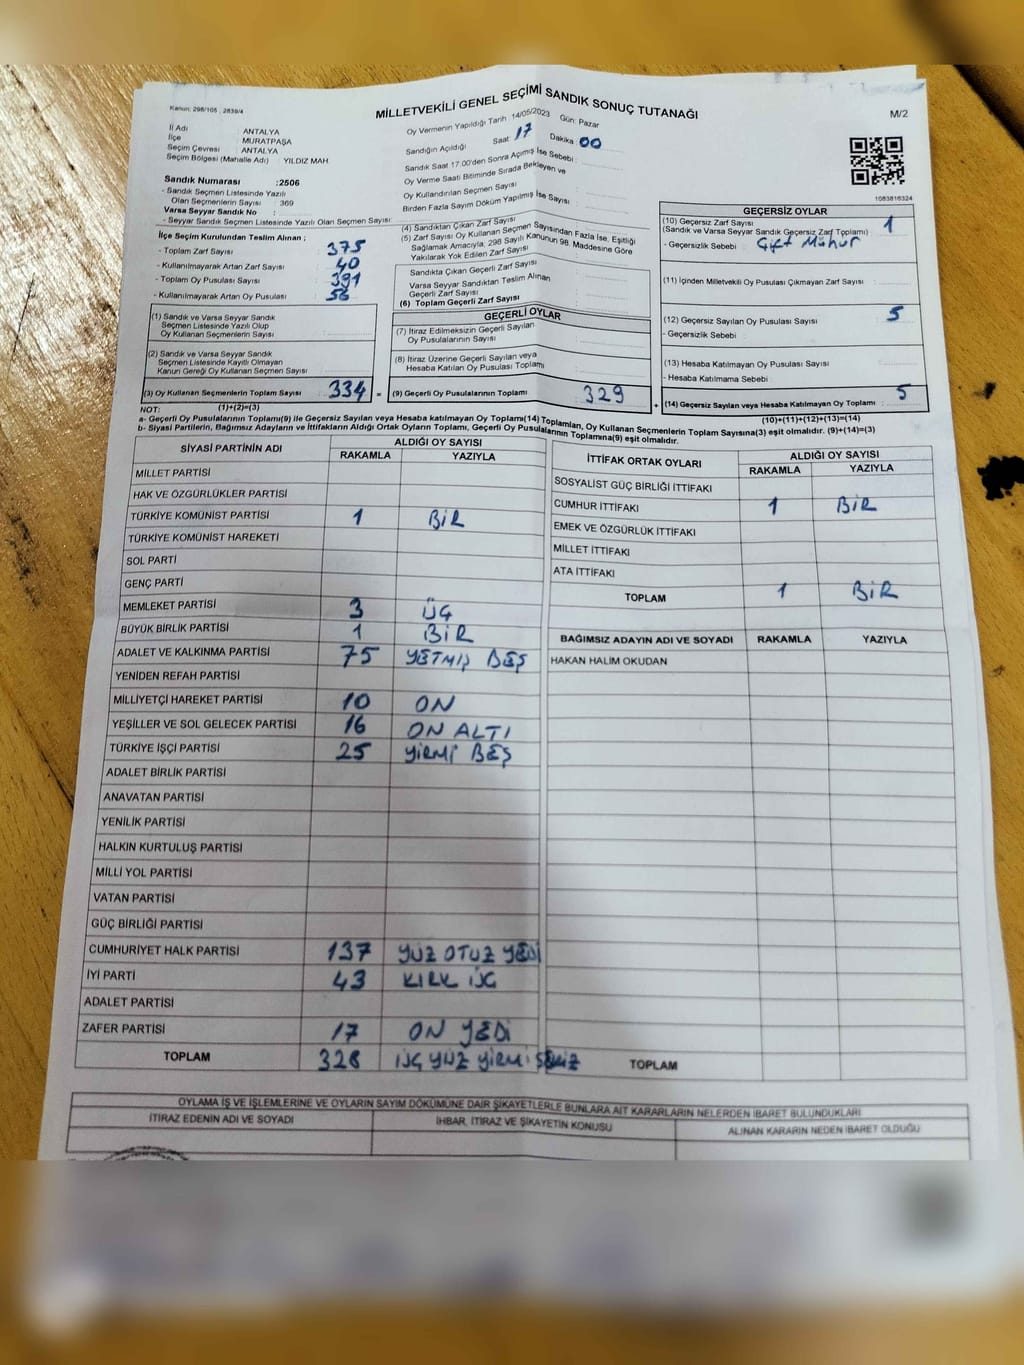 Kanun: 298/105 , 2839/4
MİLLETVEKİLİ GENEL SEÇİMİ SANDIK SONUÇ TUTANAĞI
M/2
İl Adı ANTALYA
İlçe MURATPAŞA
Seçim Çevresi ANTALYA
Seçim Bölgesi (Mahalle Adı) YILDIZ MAH
Sandık Numarası :2506
- Sandık Seçmen Listesinde Yazılı
Olan Seçmenlerin Sayısı : 369
Varsa Seyyar Sandık No :
- Seyyar Sandık Seçmen Listesinde Yazılı Olan Seçmen Sayısı:
Oy Vermenin Yapıldığı Tarih : 14/05/2023 Gün: Pazar
Sandığın Açıldığı Saat : 17 Dakika : 00
Sandık Saat 17.00'den Sonra Açımış İse Sebebi :
Oy Verme Saati Bitiminde Sırada Bekleyen ve
Oy Kullandırılan Seçmen Sayısı
Birden Fazla Sayım Döküm Yapılmış İse Sayısı :
1083816324
İlçe Seçim Kurulundan Teslim Alınan ;
- Toplam Zarf Sayısı : 375
- Kullanılmayarak Artan Zarf Sayısı : 40
- Toplam Oy Pusulası Sayısı : 391
- Kullanılmayarak Artan Oy Pusulası : 56
(1) Sandık ve Varsa Seyyar Sandık
Seçmen Listesinde Yazılı Olup
Oy Kullanan Seçmenlerin Sayısı :
(2) Sandık ve Varsa Seyyar Sandık
Seçmen Listesinde Kayıtlı Olmayan
Kanun Gereği Oy Kullanan Seçmen Sayısı :
(3) Oy Kullanan Seçmenlerin Toplam Sayısı : 334 =
(1)+(2)=(3)
(4) Sandıktan Çıkan Zarf Sayısı
(5) Zarf Sayısı Oy Kullanan Seçmen Sayısından Fazla İse, Eşitliği
Sağlamak Amacıyla; 298 Sayılı Kanunun 98. Maddesine Göre
Yakılarak Yok Edilen Zarf Sayısı
Sandıkta Çıkan Geçerli Zarf Sayısı
Varsa Seyyar Sandıktan Teslim Alınan
Geçerli Zarf Sayısı
(6) Toplam Geçerli Zarf Sayısı
GEÇERLİ OYLAR
(7) İtiraz Edilmeksizin Geçerli Sayılan
Oy Pusulalarının Sayısı
(8) İtiraz Üzerine Geçerli Sayılan veya
Hesaba Katılan Oy Pusulası Toplamı
(9) Geçerli Oy Pusulalarının Toplamı : 329 +
GEÇERSİZ OYLAR
(10) Geçersiz Zarf Sayısı
(Sandık ve Varsa Seyyar Sandık Geçersiz Zarf Toplamı) : 1
- Geçersizlik Sebebi : Çift Mühür
(11) İçinden Milletvekili Oy Pusulası Çıkmayan Zarf Sayısı :
(12) Geçersiz Sayılan Oy Pusulası Sayısı : 5
- Geçersizlik Sebebi
(13) Hesaba Katılmayan Oy Pusulası Sayısı
- Hesaba Katılmama Sebebi
(14) Geçersiz Sayılan veya Hesaba Katılmayan Oy Toplamı : 5
(10)+(11)+(12)+(13)=(14)
NOT:
a- Geçerli Oy Pusulalarının Toplamı(9) ile Geçersiz Sayılan veya Hesaba katılmayan Oy Toplamı(14) Toplamları, Oy Kullanan Seçmenlerin Toplam Sayısına(3) eşit olmalıdır. (9)+(14)=(3)
b- Siyasi Partilerin, Bağımsız Adayların ve İttifakların Aldığı Ortak Oyların Toplamı, Geçerli Oy Pusulalarının Toplamına(9) eşit olmalıdır.
SİYASİ PARTİNİN ADI ALDIĞI OY SAYISI
RAKAMLA YAZIYLA
MİLLET PARTİSİ
HAK VE ÖZGÜRLÜKLER PARTİSİ
TÜRKİYE KOMÜNİST PARTİSİ 1 BİR
TÜRKİYE KOMÜNİST HAREKETİ
SOL PARTİ
GENÇ PARTİ
MEMLEKET PARTİSİ 3 ÜÇ
BÜYÜK BİRLİK PARTİSİ 1 BİR
ADALET VE KALKINMA PARTİSİ 75 YETMİŞ BEŞ
YENİDEN REFAH PARTİSİ
MİLLİYETÇİ HAREKET PARTİSİ 10 ON
YEŞİLLER VE SOL GELECEK PARTİSİ 16 ON ALTI
TÜRKİYE İŞÇİ PARTİSİ 25 YİRMİ BEŞ
ADALET BİRLİK PARTİSİ
ANAVATAN PARTİSİ
YENİLİK PARTİSİ
HALKIN KURTULUŞ PARTİSİ
MİLLİ YOL PARTİSİ
VATAN PARTİSİ
GÜÇ BİRLİĞİ PARTİSİ
CUMHURİYET HALK PARTİSİ 137 YÜZ OTUZ YEDİ
İYİ PARTİ 43 KIRK ÜÇ
ADALET PARTİSİ
ZAFER PARTİSİ 17 ON YEDİ
TOPLAM 328 ÜÇ YÜZ YİRMİ SEKİZ
İTTİFAK ORTAK OYLARI ALDIĞI OY SAYISI
RAKAMLA YAZIYLA
SOSYALİST GÜÇ BİRLİĞİ İTTİFAKI
CUMHUR İTTİFAKI 1 BİR
EMEK VE ÖZGÜRLÜK İTTİFAKI
MİLLET İTTİFAKI
ATA İTTİFAKI
TOPLAM 1 BİR
BAĞIMSIZ ADAYIN ADI VE SOYADI RAKAMLA YAZIYLA
HAKAN HALİM OKUDAN
TOPLAM
OYLAMA İŞ VE İŞLEMLERİNE VE OYLARIN SAYIM DÖKÜMÜNE DAİR ŞİKAYETLERLE BUNLARA AİT KARARLARIN NELERDEN İBARET BULUNDUKLARI
İTİRAZ EDENİN ADI VE SOYADI İHBAR, İTİRAZ VE ŞİKAYETİN KONUSU ALINAN KARARIN NEDEN İBARET OLDUĞU